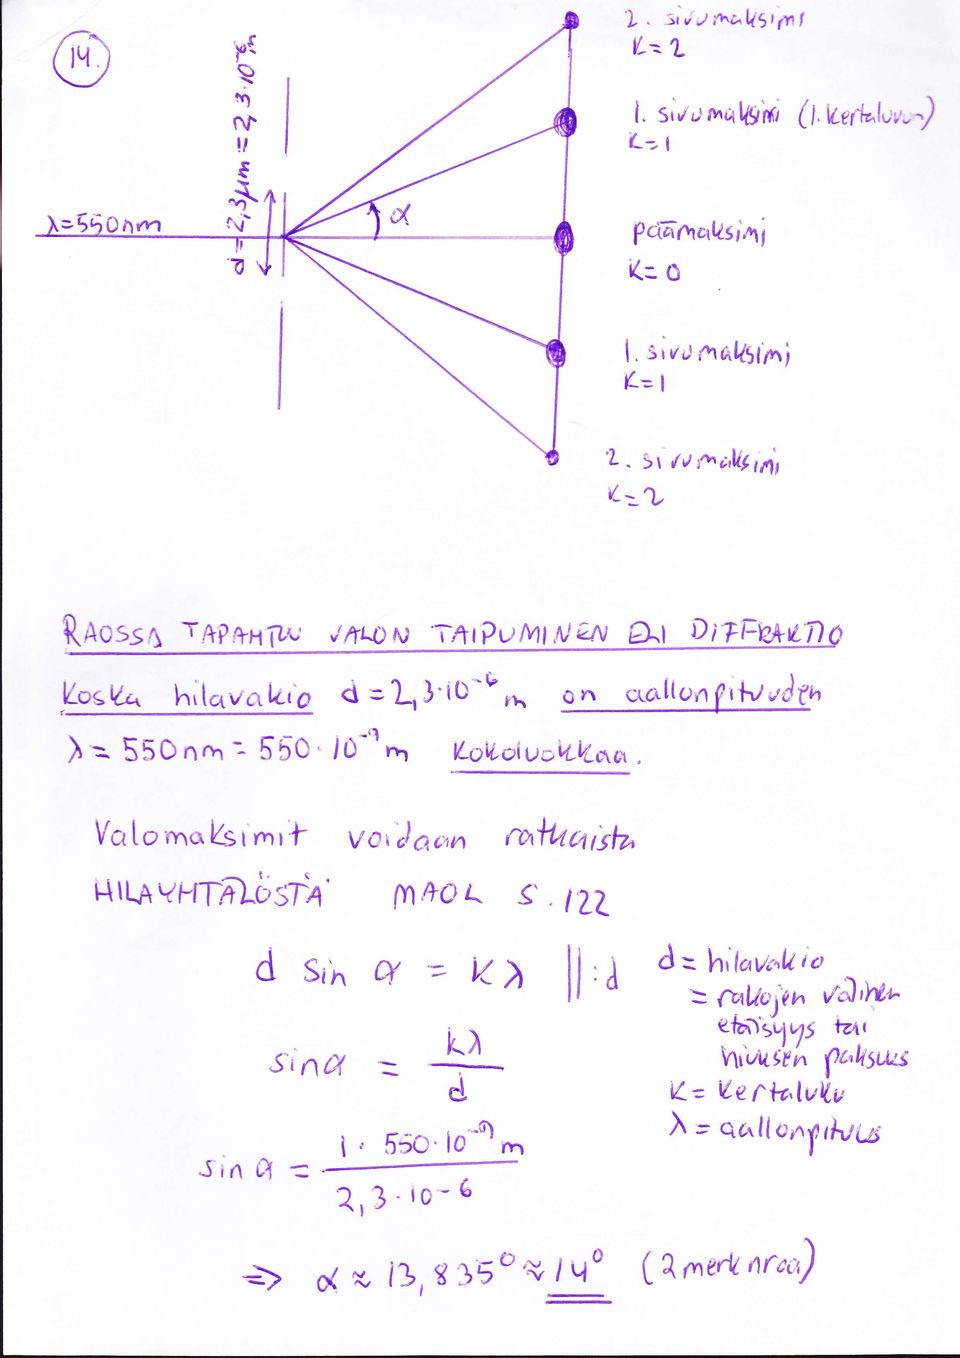 14.
2. sivumaksimi
K=2
1. sivumaksimi (1. kertaluvun)
K=1
λ=550nm
d=2,3μm=2,3·10⁻⁶m
α
päämaksimi
K=0
1. sivumaksimi
K=1
2. sivumaksimi
K=2
RAOSSA TAPAHTUU VALON TAIPUMINEN ELI DIFFRAKTIO
Koska hilavakio d=2,3·10⁻⁶ m on aallonpituuden
λ=550nm=550·10⁻⁹ m kokoluokkaa.
Valomaksimit voidaan ratkaista
HILAYHTÄLÖSTÄ MAOL S.122
d sin α = Kλ ||:d
d = hilavakio
= rakojen välinen
etäisyys tai
hiuksen paksuus
K = kertaluku
λ = aallonpituus
sinα = kλ/d
sin α = 1·550·10⁻⁹ m/2,3·10⁻⁶
=> α ≈ 13,835° ≈ 14° (2 merk nroa)